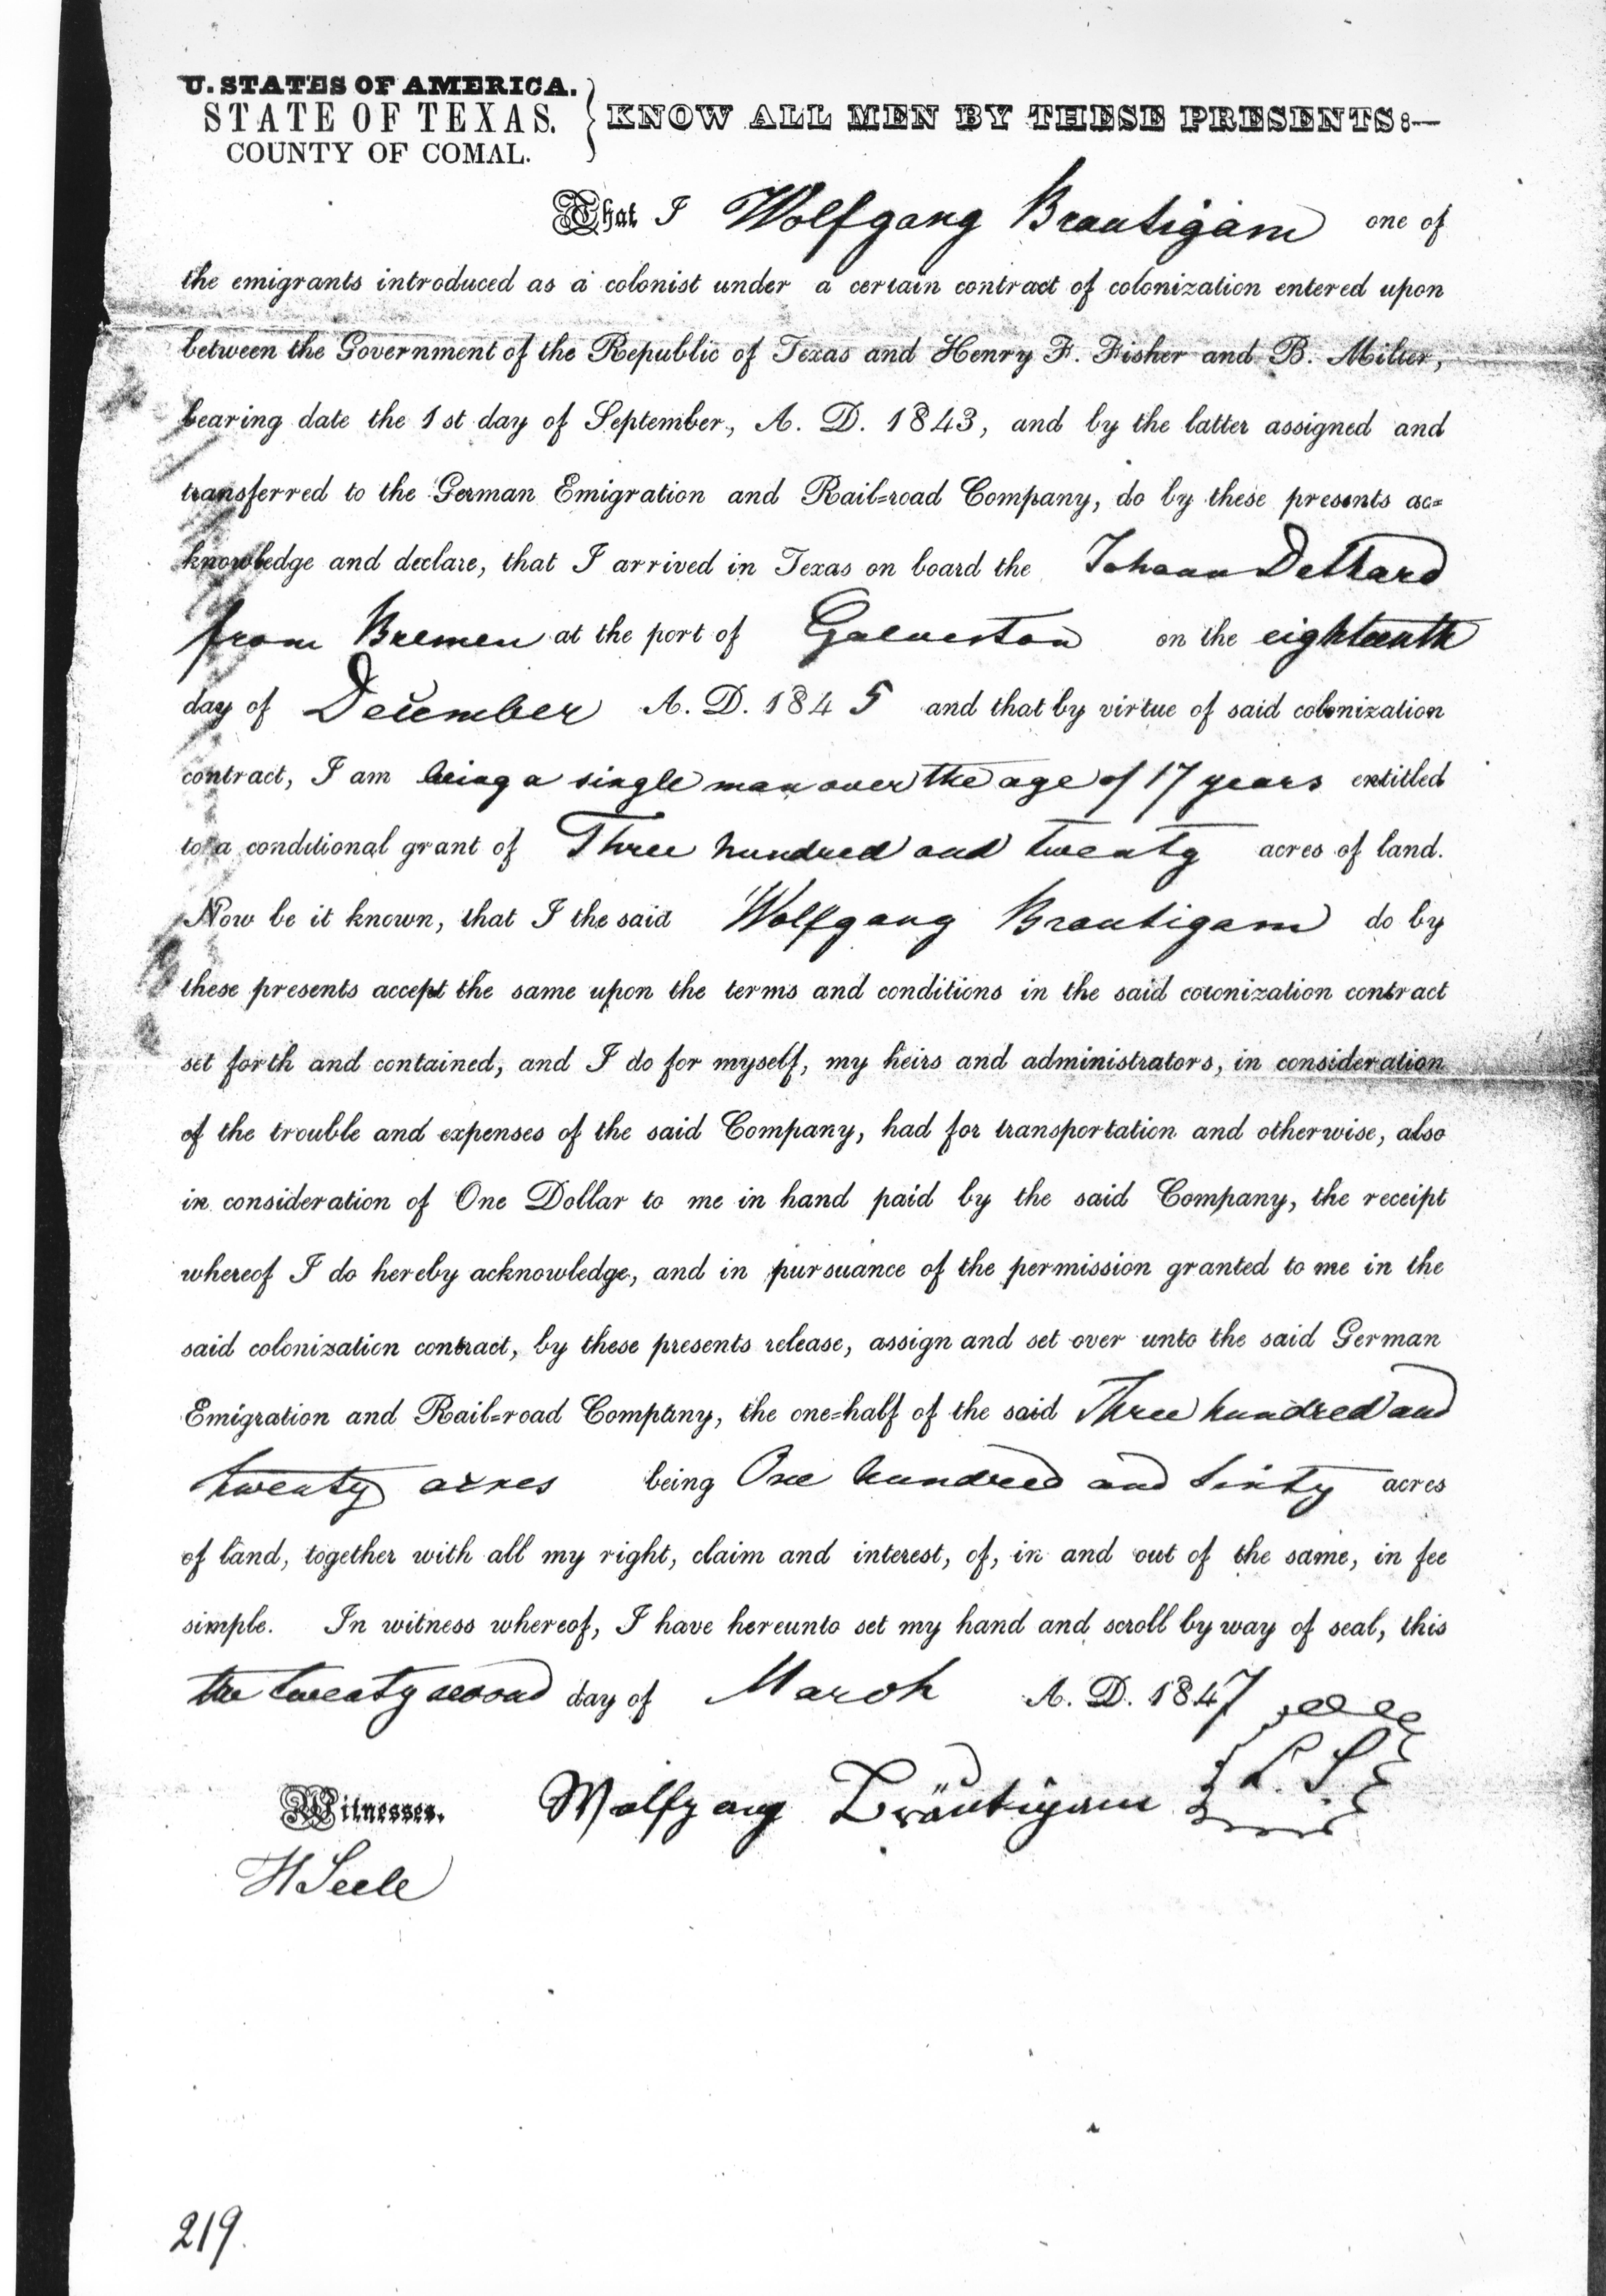 U. STATES OF AMERICA.
STATE OF TEXAS.
COUNTY OF COMAL.
KNOW ALL MEN BY THESE PRESENTS:—
That I Wolfgang Brautigam one of
the emigrants introduced as a colonist under a certain contract of colonization entered upon
between the Government of the Republic of Texas and Henry F. Fisher and B. Miller,
bearing date the 1st day of September, A. D. 1843, and by the latter assigned and
transferred to the German Emigration and Rail=road Company, do by these presents ac=
knowledge and declare, that I arrived in Texas on board the Johann Dethard
from Bremen at the port of Galveston on the eighteenth
day of December A. D. 1845 and that by virtue of said colonization
contract, I am being a single man over the age of 17 years entitled
to a conditional grant of Three hundred and twenty acres of land.
Now be it known, that I the said Wolfgang Brautigam do by
these presents accept the same upon the terms and conditions in the said colonization contract
set forth and contained, and I do for myself, my heirs and administrators, in consideration
of the trouble and expenses of the said Company, had for transportation and otherwise, also
in consideration of One Dollar to me in hand paid by the said Company, the receipt
whereof I do hereby acknowledge, and in pursuance of the permission granted to me in the
said colonization contract, by these presents release, assign and set over unto the said German
Emigration and Rail=road Company, the one=half of the said Three hundred and
twenty acres being One hundred and sixty acres
of land, together with all my right, claim and interest, of, in and out of the same, in fee
simple. In witness whereof, I have hereunto set my hand and scroll by way of seal, this
the twenty second day of March A. D. 1847
Witnesses. Wolfgang Bräutigam L. S.
H Seele
219.